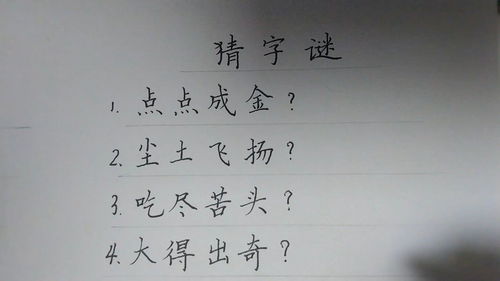 猜字谜
1. 点点成金?
2. 尘土飞扬?
3. 吃尽苦头?
4. 大得出奇?